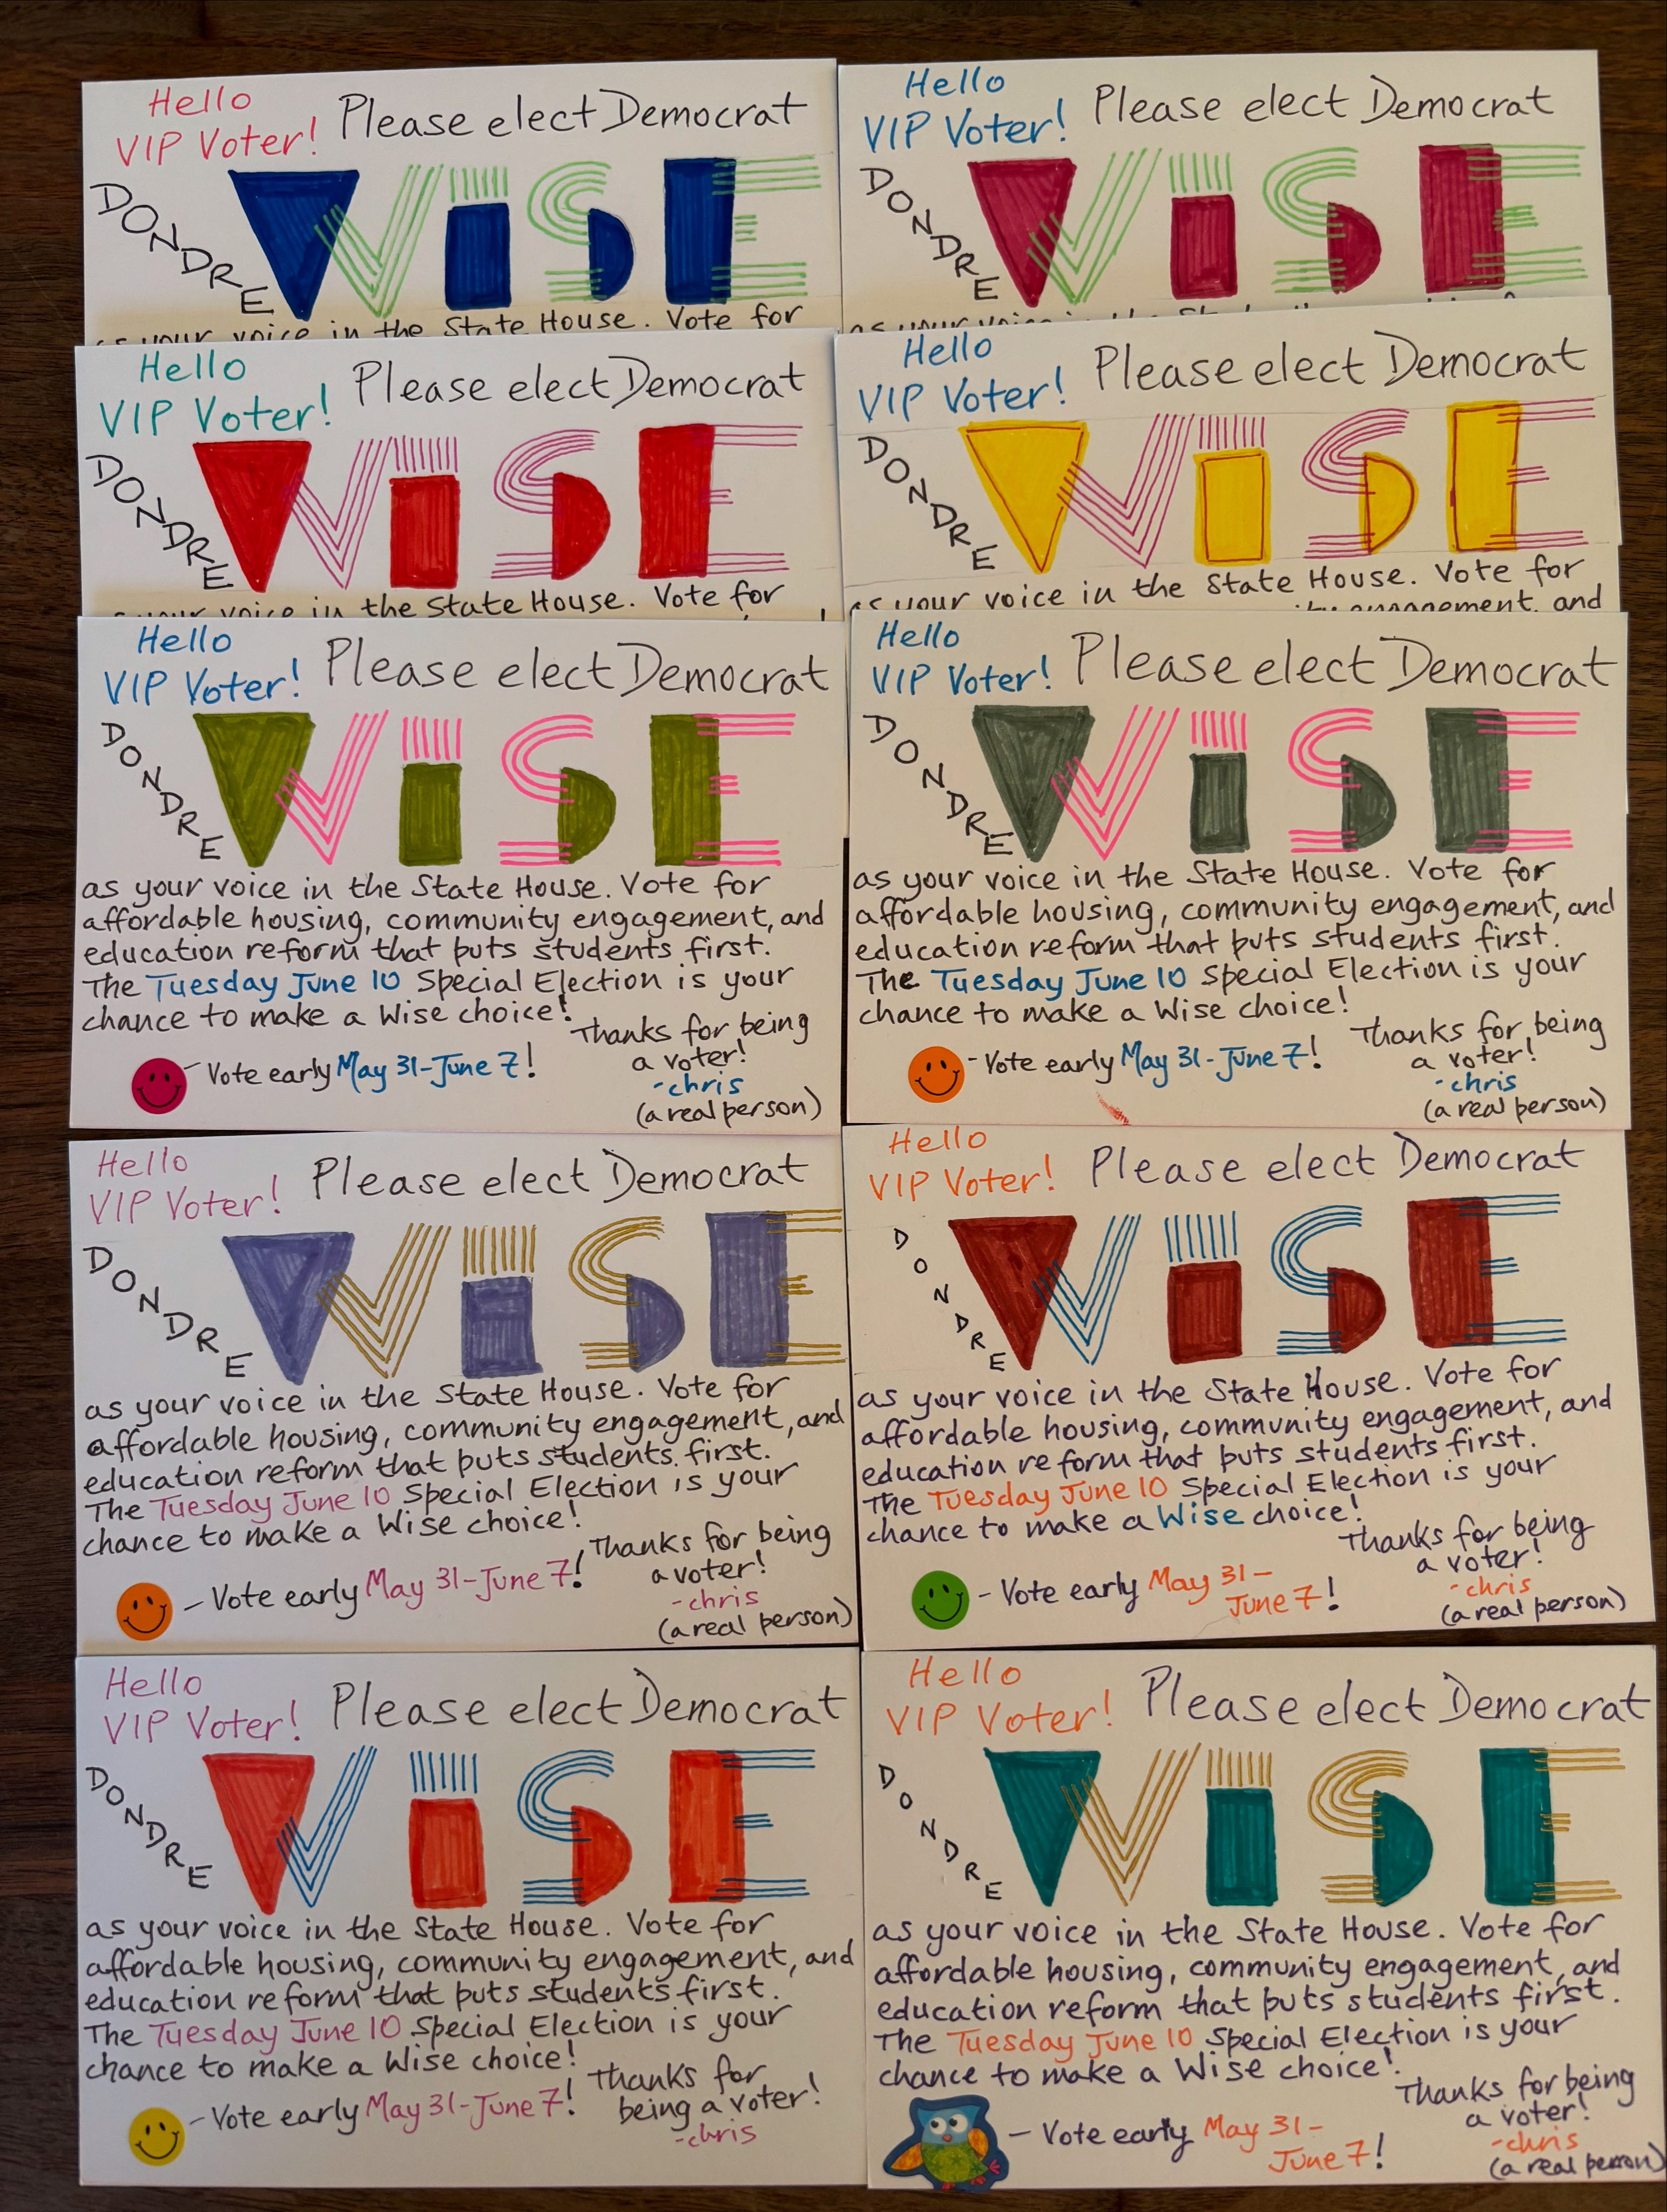 Hello
VIP Voter!
Please elect Democrat
DONDRE
WiSE
as your voice in the State House. Vote for
Hello
VIP Voter!
Please elect Democrat
DONDRE
WiSE
Hello
VIP Voter!
Please elect Democrat
DONDRE
WiSE
as your voice in the State House. Vote for
Hello
VIP Voter!
Please elect Democrat
DONDRE
WiSE
as your voice in the State House. Vote for
engagement, and
Hello
VIP Voter!
Please elect Democrat
DONDRE
WiSE
as your voice in the State House. Vote for
affordable housing, community engagement, and
education reform that puts students first.
The Tuesday June 10 Special Election is your
chance to make a Wise choice!
- Vote early May 31-June 7!
Thanks for being
a voter!
-chris
(a real person)
Hello
VIP Voter!
Please elect Democrat
DONDRE
WiSE
as your voice in the State House. Vote for
affordable housing, community engagement, and
education reform that puts students first.
The Tuesday June 10 Special Election is your
chance to make a Wise choice!
- Vote early May 31-June 7!
Thanks for being
a voter!
-chris
(a real person)
Hello
VIP Voter!
Please elect Democrat
DONDRE
WiSE
as your voice in the State House. Vote for
affordable housing, community engagement, and
education reform that puts students first.
The Tuesday June 10 Special Election is your
chance to make a Wise choice!
- Vote early May 31-June 7!
Thanks for being
a voter!
-chris
(a real person)
Hello
VIP Voter!
Please elect Democrat
DONDRE
WiSE
as your voice in the State House. Vote for
affordable housing, community engagement, and
education reform that puts students first.
The Tuesday June 10 Special Election is your
chance to make a Wise choice!
- Vote early May 31-
June 7!
Thanks for being
a voter!
-chris
(a real person)
Hello
VIP Voter!
Please elect Democrat
DONDRE
WiSE
as your voice in the State House. Vote for
affordable housing, community engagement, and
education reform that puts students first.
The Tuesday June 10 Special Election is your
chance to make a Wise choice!
- Vote early May 31-June 7!
Thanks for
being a voter!
-chris
Hello
VIP Voter!
Please elect Democrat
DONDRE
WiSE
as your voice in the State House. Vote for
affordable housing, community engagement, and
education reform that puts students first.
The Tuesday June 10 Special Election is your
chance to make a Wise choice!
- Vote early May 31-
June 7!
Thanks for being
a voter!
-chris
(a real person)